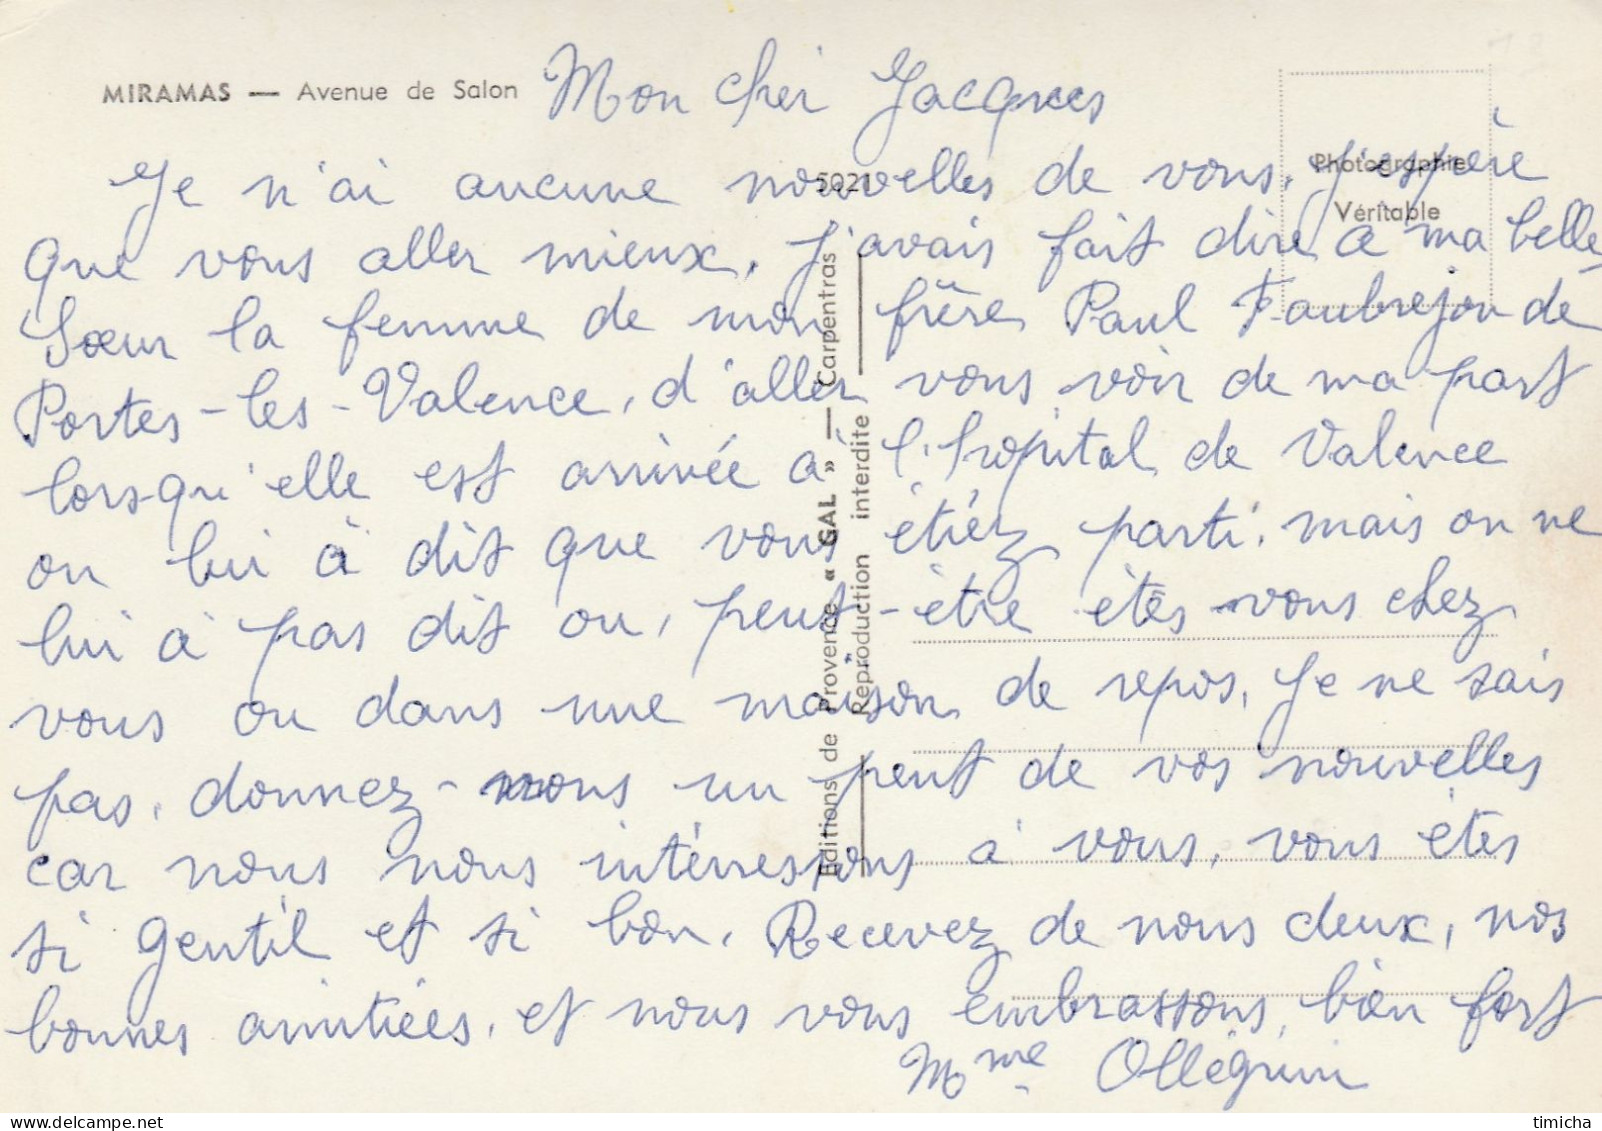 MIRAMAS — Avenue de Salon
Mon cher Jacques
Je n'ai aucune nouvelles de vous, j'espère
que vous aller mieux, j'avais fait dire a ma belle
Sœur la femme de mon frère Paul Faubrejon de
Portes-les-Valence, d'aller vous voir de ma part
lorsqu'elle est arrivée a l'hopital de Valence
on lui à dit que vous étiéz parti, mais on ne
lui à pas dit ou, peut-être êtes vous chez
vous ou dans une maison de repos, Je ne sais
pas, donnez-nous un peut de vos nouvelles
car nous nous intérressons à vous, vous êtes
si gentil et si bon, Recevez de nous deux, nos
bonnes amitiées, et nous vous embrassons, bien fort
Mme
5021
Photographie
Véritable
Editions de Provence « GAL » — Carpentras
Reproduction interdite
timicha